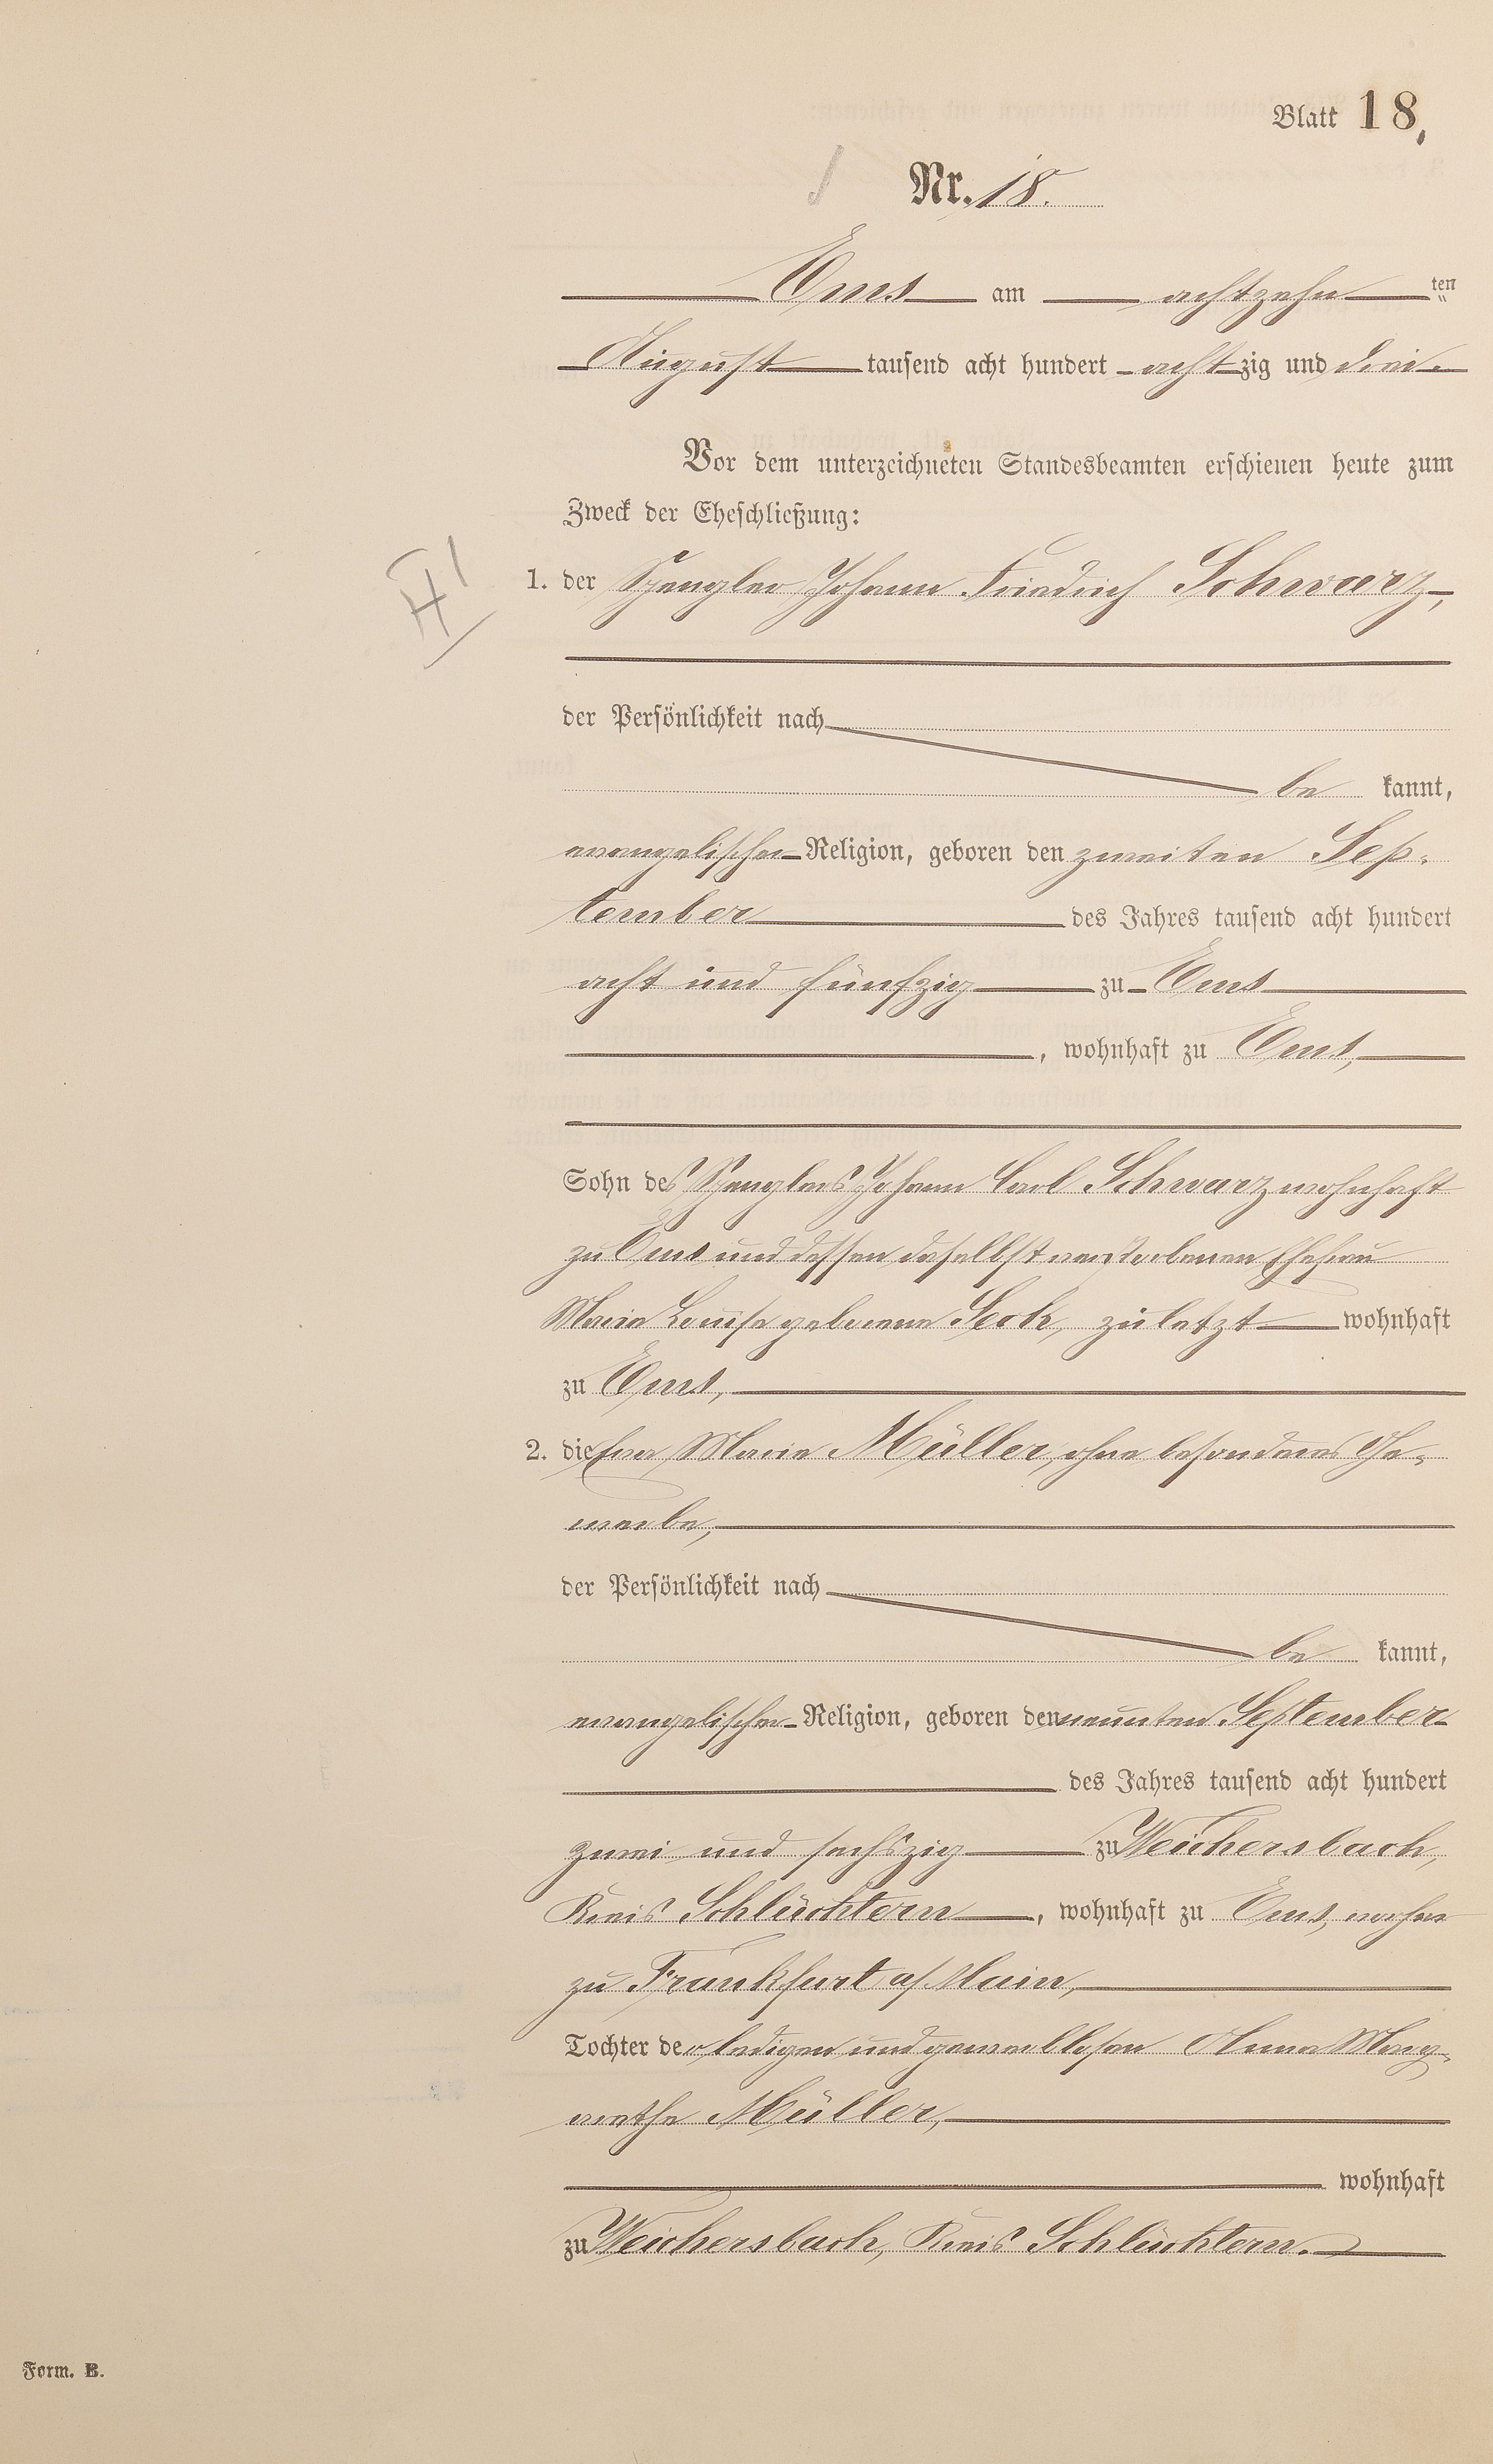 Blatt 18,
Nr. 18.
Ems am achtzehn ten
August tausend acht hundert achtzig und drei.
Vor dem unterzeichneten Standesbeamten erschienen heute zum
Zweck der Eheschließung:
1. der Spengler Johann Friedrich Schwarz,
der Persönlichkeit nach
be kannt,
evangelischer Religion, geboren den zweiten Sep-
tember des Jahres tausend acht hundert
acht und fünfzig zu Ems
, wohnhaft zu Ems,
Sohn des Spenglers Johann Carl Schwarz wohnhaft
zu Ems und dessen daselbst verstorbenen Ehefrau
Marie Louise geborene Seck, zuletzt wohnhaft
zu Ems,
2. die Eva Marie Müller, ohne besonderes Ge-
werbe,
der Persönlichkeit nach
be kannt,
evangelischer Religion, geboren den neunten September
des Jahres tausend acht hundert
zwei und sechszig zu Weichersbach,
Kreis Schlüchtern, wohnhaft zu Ems, vorher
zu Frankfurt a/Main,
Tochter der ledigen und gewerblosen Anna Marg-
rethe Müller,
wohnhaft
zu Weichersbach, Kreis Schlüchtern.
Form. B.